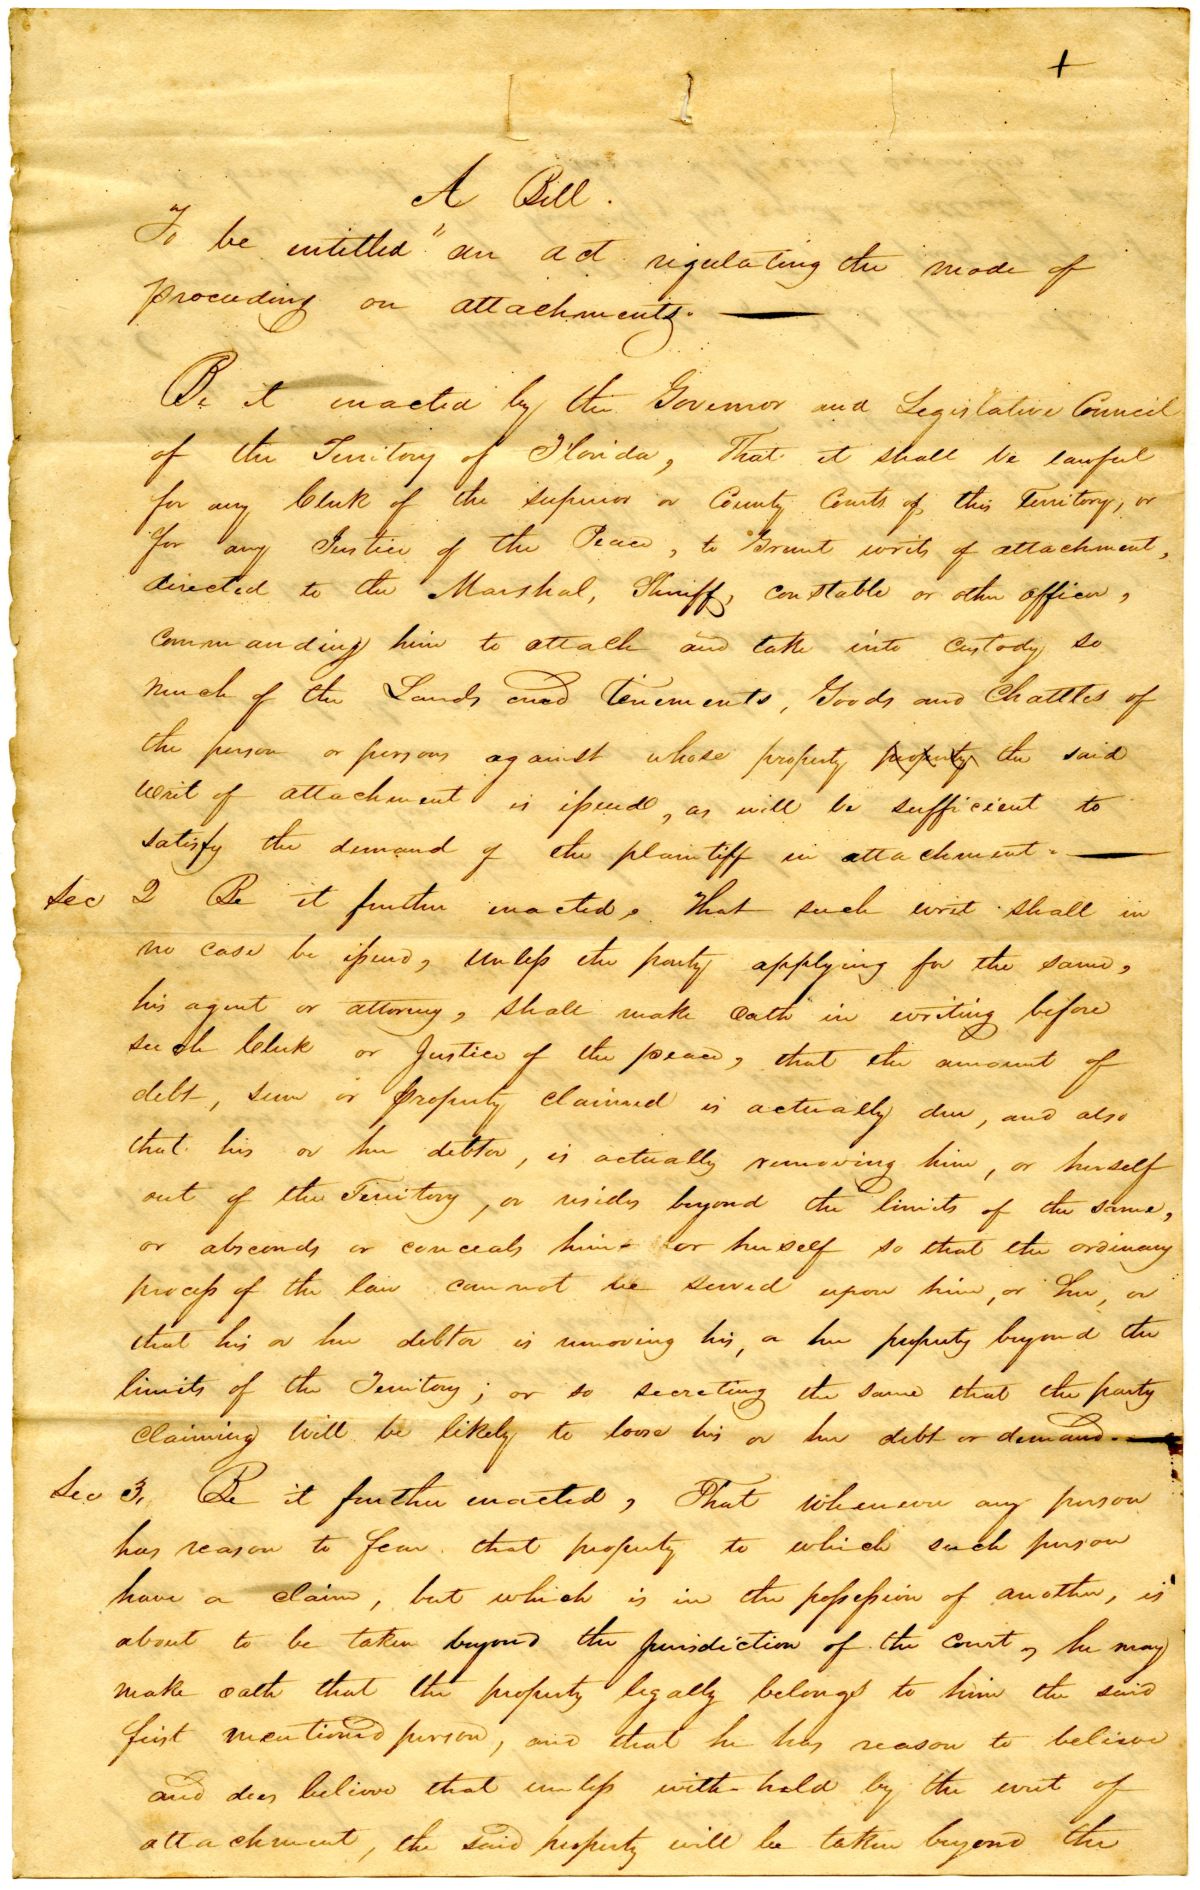 +
A Bill.
To be entitled "an act regulating the mode of
proceeding on attachments.
Be it enacted by the Governor and Legislative Council
of the Territory of Florida, That it shall be lawful
for any Clerk of the superior or County Courts of this Territory, or
for any Justice of the Peace, to Grant writs of attachment,
directed to the Marshal, Sheriff, constable or other officer,
commanding him to attach and take into custody so
much of the Lands and Tenements, Goods and Chattles of
the person or persons against whose property property the said
writ of attachment is issued, as will be sufficient to
satisfy the demand of the plaintiff in attachment.
Sec 2 Be it further enacted, That such writ shall in
no case be issued, unless the party applying for the same,
his agent or attorney, shall make oath in writing before
such Clerk or Justice of the peace, that the amount of
debt, sum or property claimed is actually due, and also
that his or her debtor, is actually removing him, or herself
out of the Territory, or resides beyond the limits of the same,
or absconds or conceals him or herself so that the ordinary
process of the law cannot be served upon him, or her, or
that his or her debtor is removing his, or her property beyond the
limits of the Territory; or so secreting the same that the party
claiming will be likely to loose his or her debt or demand.
Sec 3, Be it further enacted, That whenever any person
has reason to fear that property to which such person
have a claim, but which is in the possession of another, is
about to be taken beyond the jurisdiction of the Court, he may
make oath that the property legally belongs to him the said
first mentioned person, and that he has reason to believe
and does believe that unless with-held by the writ of
attachment, the said property will be taken beyond the